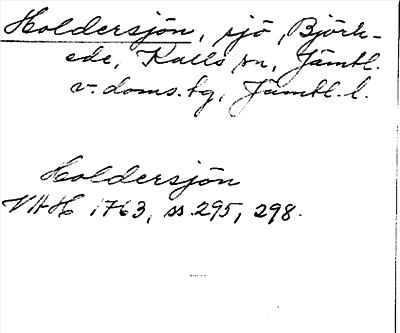 Holdersjön, sjö, Björk-
ede, Kalls sn, Jämtl.
v. doms. tg, Jämtl. l.
Holdersjön
VAH 1763, ss 295, 298.